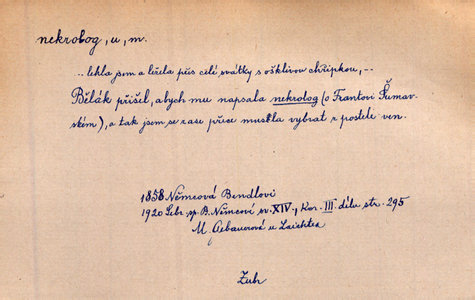 nekrolog, u, m.
.. lehla jsem a ležela přes celé svátky s ošklivou chřipkou, --
Bělák přišel, abych mu napsala nekrolog (o Frantovi Šumav-
ském), a tak jsem se zase přece musila vybrat z postele ven.
1858 Němcová Bendlovi
1920 Sebr. sp. B. Němcové sv. XIV., Kor. III. dílu str. 295
M. Gebauerová u Laichtra
Zubr